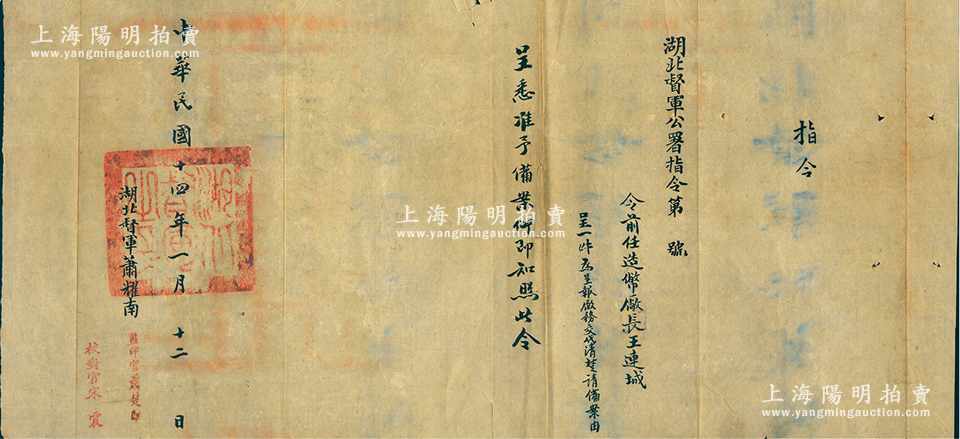 指令
湖北督軍公署指令第 號
令前任造幣廠長王連城
呈一件為呈報廠務交代清楚請備案由
呈悉准予備案仰即知照此令
中華民國十四年一月十二日
湖北督軍蕭耀南
監印官
校對官宋震
上海陽明拍賣
www.yangmingauction.com
上海陽明拍賣
www.yangmingauction.com
上海陽明拍賣
www.yangmingauction.com